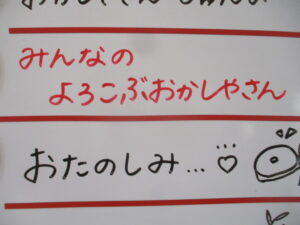 みんなの
よろこぶおかしやさん
おたのしみ…♡